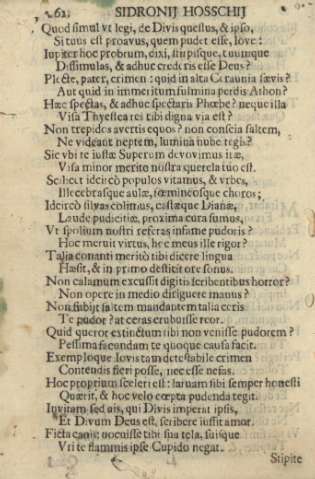 62 SIDRONII HOSSCHII
Quod simul vt legi, de Divis questus, & ipso,
Si tuus est proavus, quem pudet esse, Iove:
Iupiter hoc probrum, dixi, stirpisque, tuumque
Dissimulas, & adhuc crederis esse Deus?
Plecte, pater, crimen: quid in alta Ceraunia sævis?
Aut quid in immeritum fulmina perdis Athon?
Hæc spectas, & adhuc spectaris Phœbe? neque illa
Visa Thyestea rei tibi digna via est?
Non trepidos avertis equos? non conscia saltem,
Ne videant neptem, lumina nube tegis?
Sic vbi te iustæ Superum devovimus iræ,
Visa minor merito nostra querela tuo est.
Scilicet idcircò populos vitamus, & vrbes,
Illecebrasque aulæ, fœmineosque choros;
Idcircò silvas colimus, castæque Dianæ,
Laude pudicitiæ, proxima cura sumus,
Vt spolium nostri referas infame pudoris?
Hoc meruit virtus, hec meus ille rigor?
Talia conanti meritò tibi dicere lingua
Hæsit, & in primo destitit ore sonus.
Non calamum excussit digitis scribentibus horror?
Non opere in medio diriguere manus?
Non subijt saltem mandantem talia ceris
Te pudor? at ceras erubuisse reor.
Quid queror extinctum tibi non venisse pudorem?
Pessima facundam te quoque causa facit.
Exemploque Iovis tam detestabile crimen
Contendis fieri posse, nec esse nefas.
Hoc proprium sceleri est: larvam sibi semper honesti
Quærit, & hoc velo cœpta pudenda tegit.
Invitam sed ais, qui Divis imperat ipsis,
Et Divum Deus est, scribere iussit amor.
Ficta canis: nocuisse tibi sua tela, suisque
Vri te flammis ipse Cupido negat.
Stipite